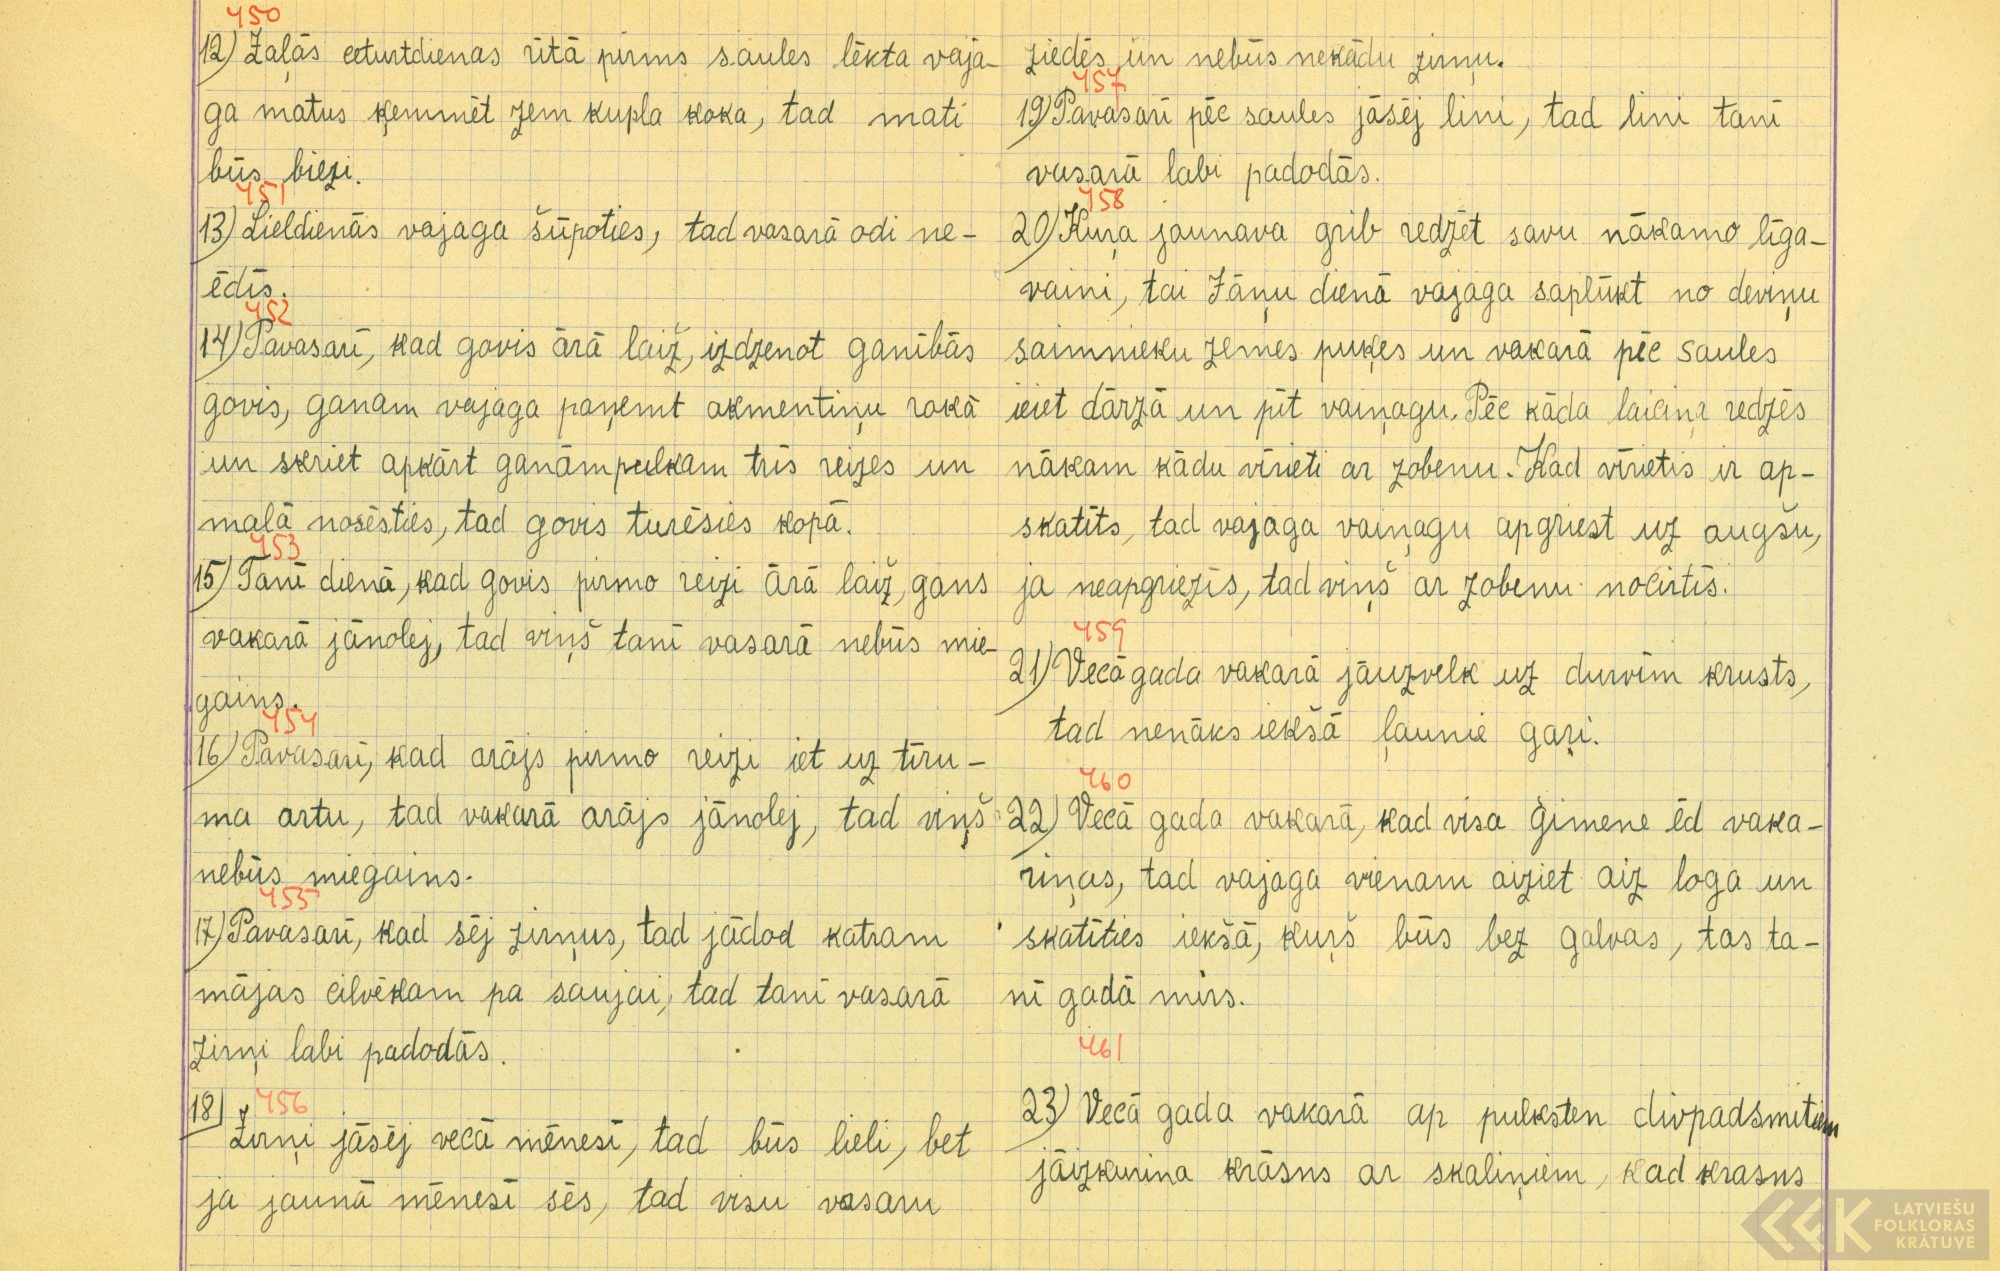 450
12) Zaļās ceturtdienas rītā pirms saules lēkta vaja-
ga matus ķemmēt zem kupla koka, tad mati
būs biezi.
451
13) Lieldienās vajaga šūpoties, tad vasarā odi ne-
ēdīs.
452
14) Pavasarī, kad govis ārā laiž, izdzenot ganībās
govis, ganam vajaga paņemt akmentiņu rokā
un skriet apkārt ganāmpulkam trīs reizes un
malā nosēsties, tad govis turēsies kopā.
453
15) Tanī dienā, kad govis pirmo reizi ārā laiž, gans
vakarā jānolej, tad viņš tanī vasarā nebūs mie-
gains.
454
16) Pavasarī, kad arājs pirmo reizi iet uz tīru-
ma artu, tad vakarā arājs jānolej, tad viņš
nebūs miegains.
455
17) Pavasarī, kad sēj zirņus, tad jādod katram
mājas cilvēkam pa saujai, tad tanī vasarā
zirņi labi padodās.
456
18) Zirņi jāsēj vecā mēnesī, tad būs lieli, bet
ja jaunā mēnesī sēs, tad visu vasaru
ziedēs un nebūs nekādu zirņu.
457
19) Pavasarī pēc saules jāsēj lini, tad lini tanī
vasarā labi padodās.
458
20) Kuŗa jaunava grib redzēt savu nākamo līga-
vaini, tai Jāņu dienā vajaga saplūkt no deviņu
saimnieku zemes puķes un vakarā pēc saules
ieiet dārzā un pīt vaiņagu. Pēc kāda laiciņa redzēs
nākam kādu vīrieti ar zobenu. Kad vīrietis ir ap-
skatīts, tad vajaga vaiņagu apgriest uz augšu,
ja neapgriezīs, tad viņš ar zobenu nocirtīs.
459
21) Vecā gada vakarā jāuzvelk uz durvīm krusts,
tad nenāks iekšā ļaunie gaŗi.
460
22) Vecā gada vakarā, kad visa ģimene ēd vaka-
riņas, tad vajaga vienam aiziet aiz loga un
skatīties iekšā, kuŗš būs bez galvas, tas ta-
nī gadā mirs.
461
23) Vecā gada vakarā ap pulksten divpadsmitiem
jāizkurina krāsns ar skaliņiem, kad krasns
LATVIEŠU
FOLKLORAS
KRĀTUVE